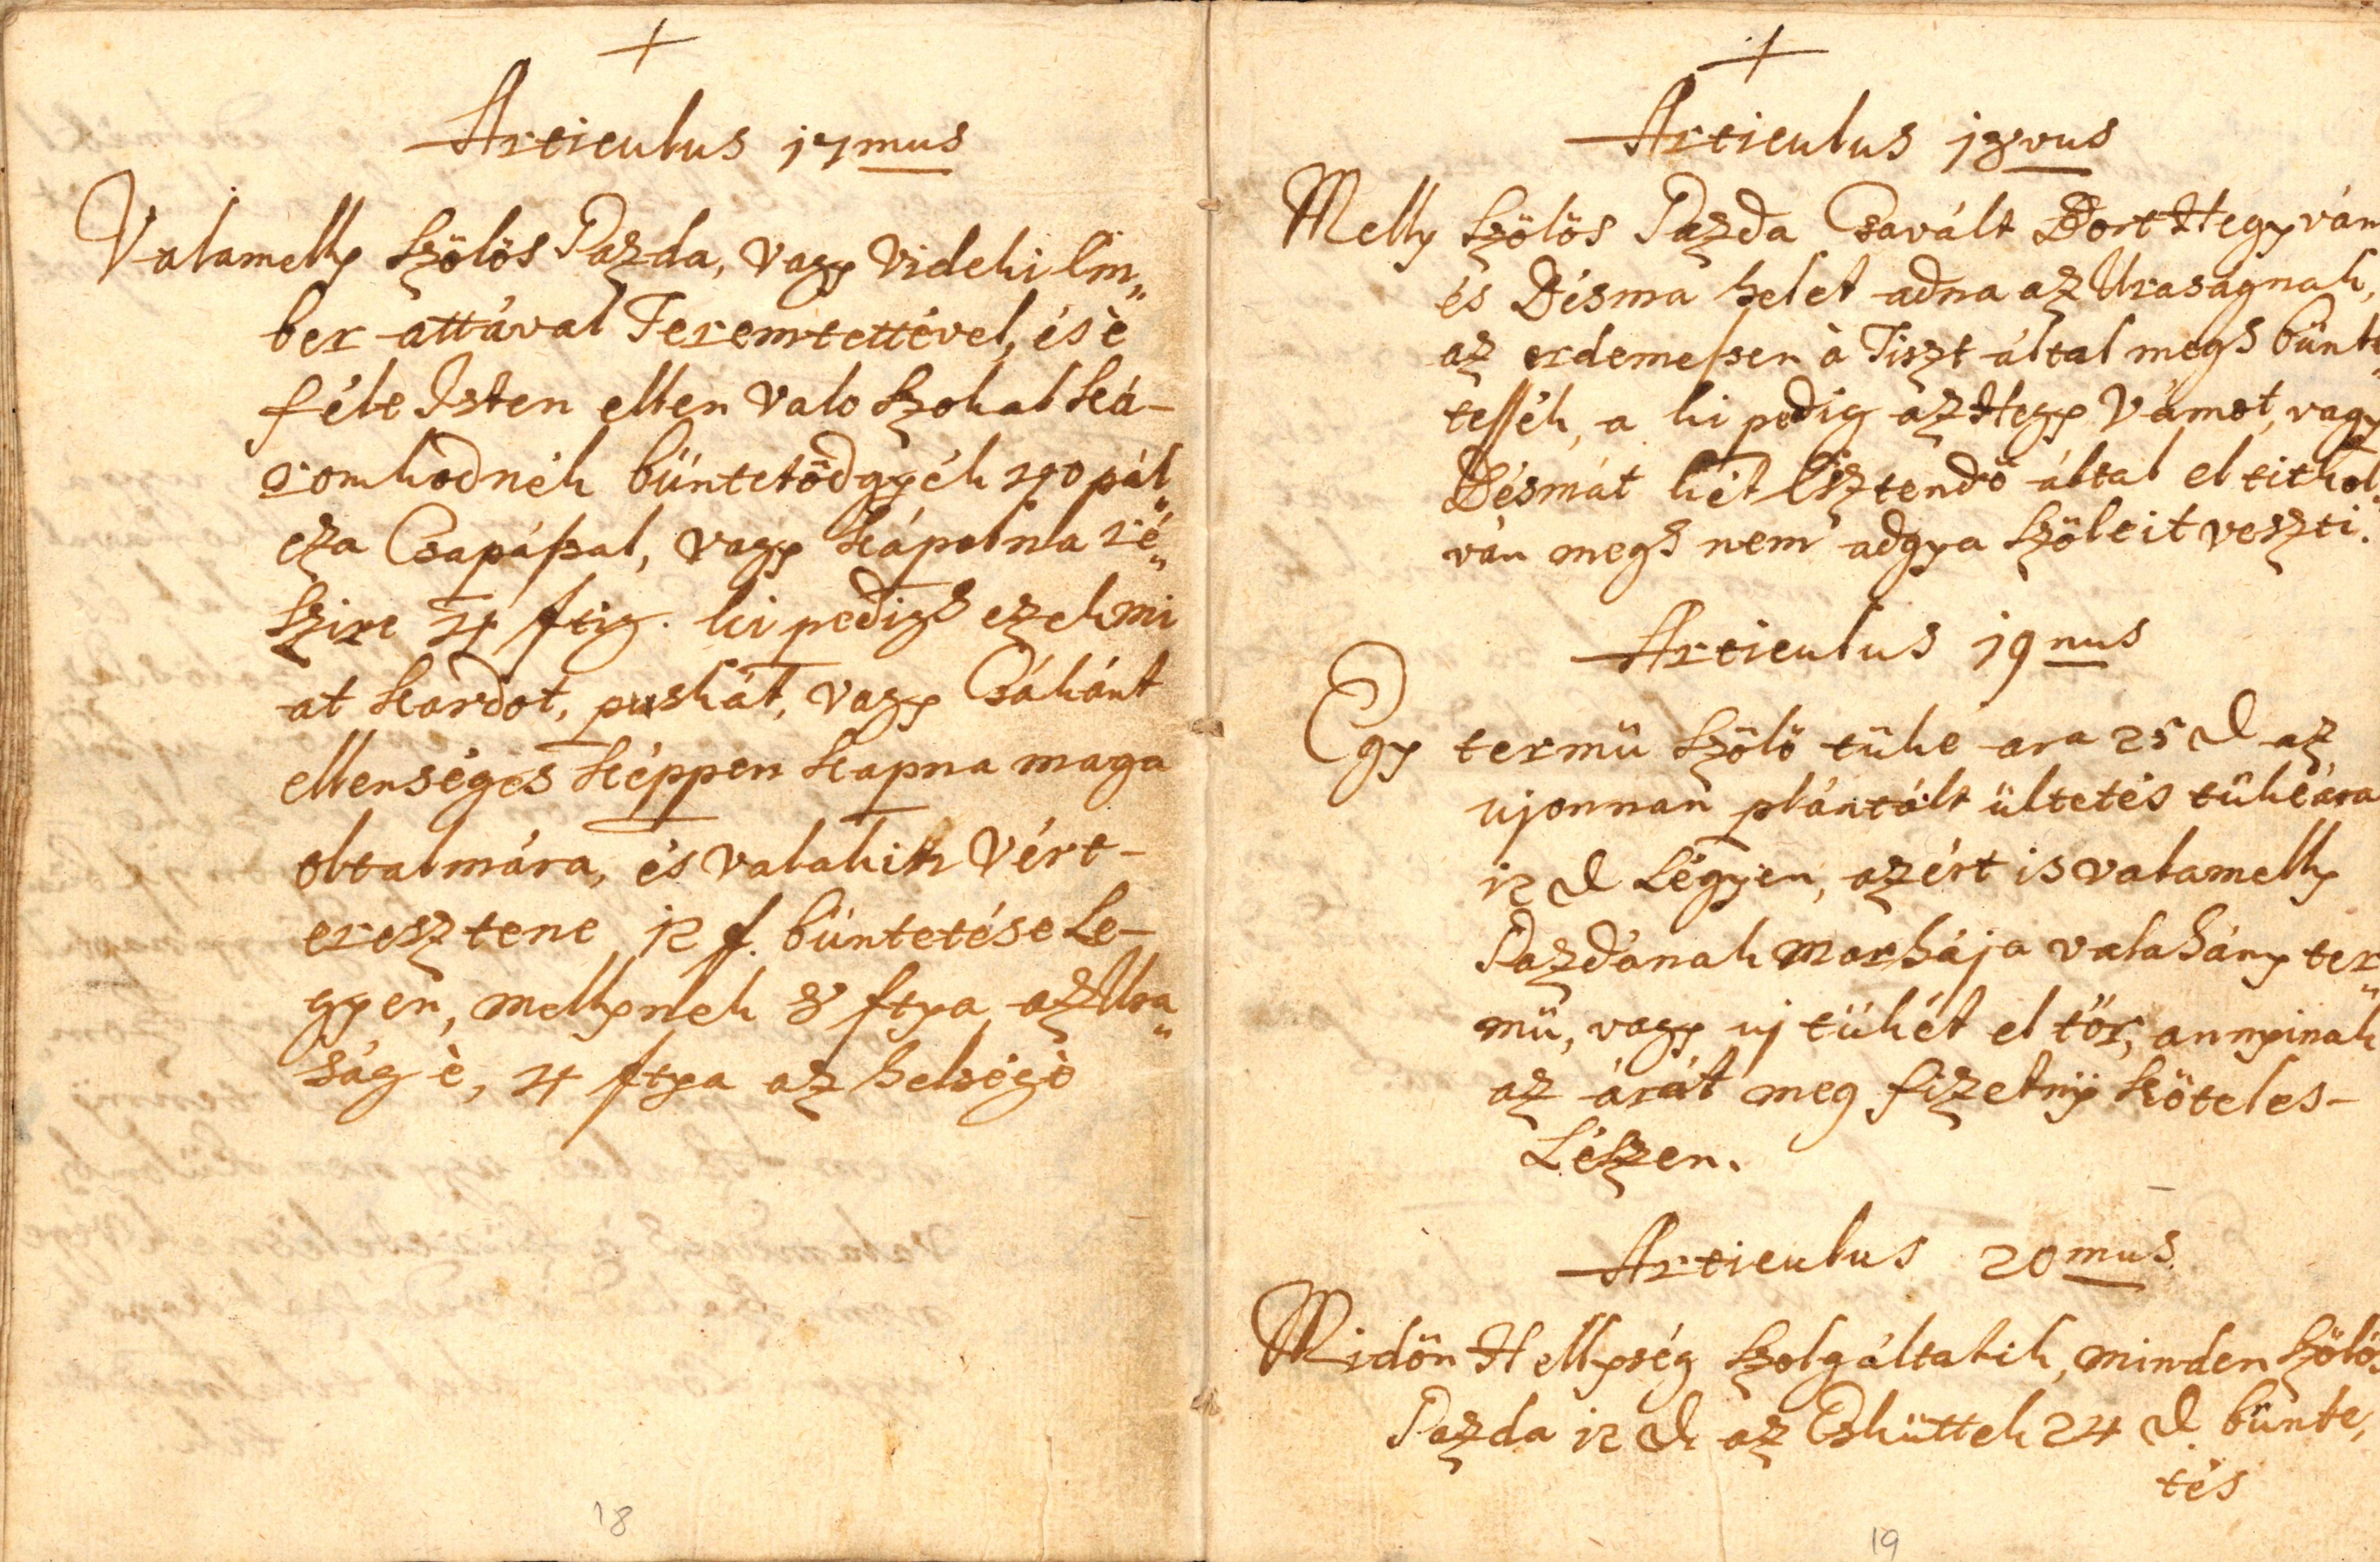 Articulus 17mus
Valamelly Szölös Gazda, vagy Videki Em„
ber attával Teremtettével, és è
féle Isten ellen valo Szokal ká-
romkodnék büntetödgyék 40 pál„
cza Csapással, vagy Kápolna ré„
Szire 4 ftig. ki pedigh ezek mi
at Kardot, puskát, vagy Csákánt
ellenséges Képpen Kapna maga
oltalmára, és valakin Vért-
eresztene 12 f. büntetése Le-
gyen, mellynek 8 ftya az Ura„
ság è, 4 ftya az helségè
18
Articulus 18vus
Melly Szölös Gazda Csavált Bort Hegy vám
és Désma helet adna az Uraságnak,
az erdemessen à Tiszt által megh bünte„
tessék, a ki pedig az Hegy Vámot, vagy
Désmát két Esztendö által el titkol
ván megh nem adgya Szöleit veszti.
Articulus 19nus
Egy termü Szölö tüke ara 25 d az
ujonnan plántált ültetés tüke ára
12 d Légyen, azért is valamelly
Gazdának Marhája valahány ter„
mü, vagy uj tükét el tör, annyinak
az árát meg fizetny Köteles-
Lészen.
Articulus 20mus
Midön Hellység Szolgáltatik, minden Szölös
Gazda 12 d az Esküttek 24 d bünte,
tés
19